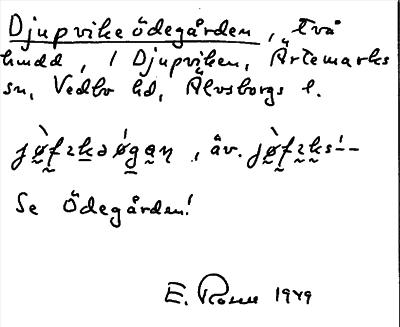 Djupvike ödegården, två
hmdd, i Djupviken, Ärtemarks
sn, Vedbo hd, Älvsborgs l.
jø̀fzkəǿgaŋ, äv. jø̀fzks!--
Se Ödegården!
E. 1949